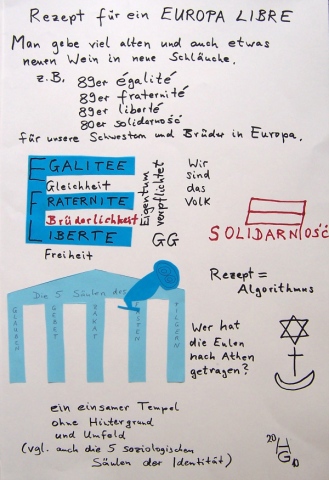 Rezept für ein EUROPA LIBRE
Man gebe viel alten und auch etwas
neuen Wein in neue Schläuche.
z.B. 89er égalité
89er fraternité
89er liberté
80er solidarność
für unsere Schwestern und Brüder in Europa.
EGALITEE
Gleichheit
FRATERNITE
Brüderlichkeit
LIBERTE
Freiheit
Eigentum
verpflichtet
GG
Wir
sind
das
Volk
SOLIDARNOŚĆ
Rezept =
Algorithmus
Die 5 Säulen des
GLAUBEN
GEBET
ZAKAT
FASTEN
PILGERN
Wer hat
die Eulen
nach Athen
getragen?
ein einsamer Tempel
ohne Hintergrund
und Umfeld
(vgl. auch die 5 soziologischen
Säulen der Identität)
20 HG 10